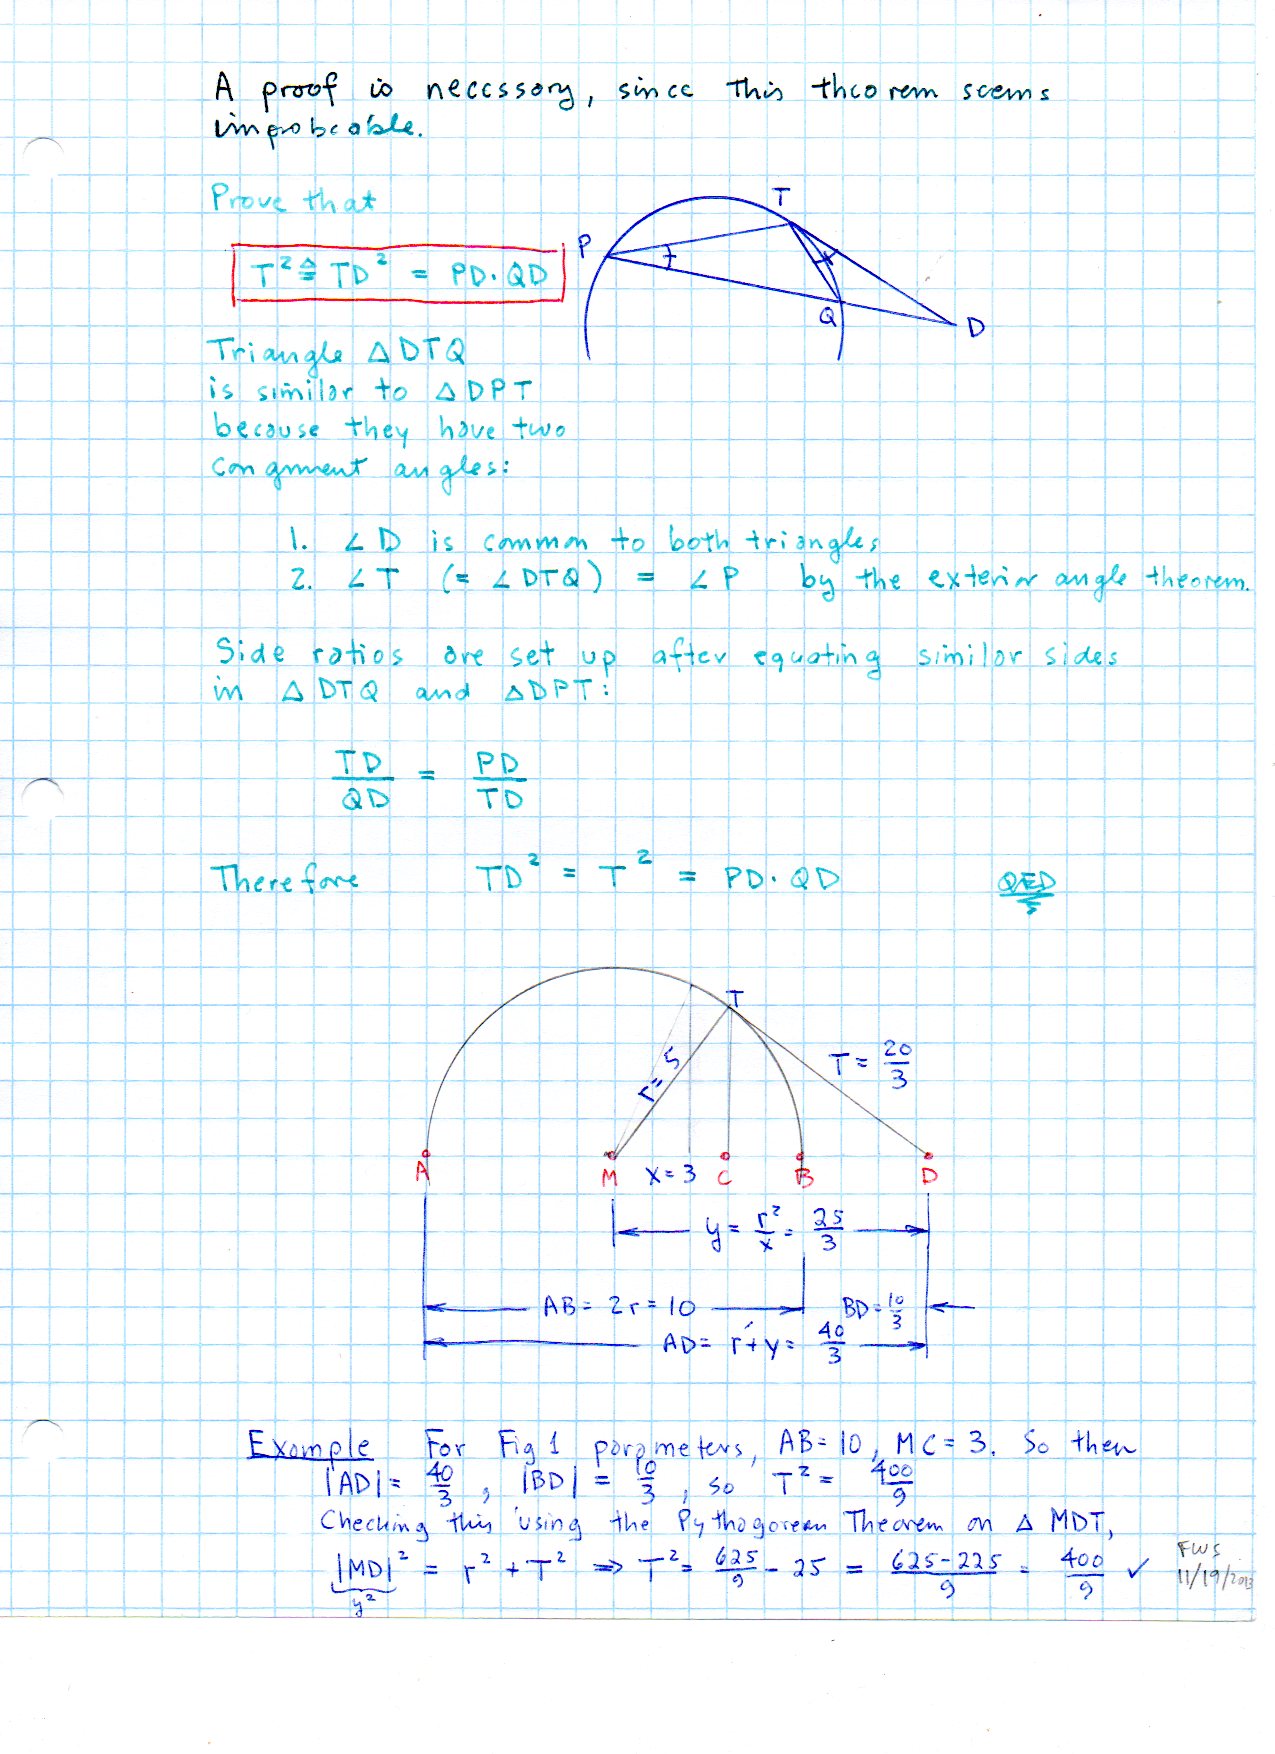 A proof is necessary, since this theorem seems
improbeable.
Prove that
T² ≜ TD² = PD·QD
P
T
Q
D
Triangle ΔDTQ
is similar to ΔDPT
because they have two
congruent angles:
1. ∠D is common to both triangles
2. ∠T (= ∠DTQ) = ∠P by the exterior angle theorem.
Side ratios are set up after equating similar sides
in ΔDTQ and ΔDPT:
TD/QD = PD/TD
Therefore TD² = T² = PD·QD QED
T
r=5
T = 20/3
A M x=3 C B D
y = r²/x = 25/3
AB = 2r = 10 BD = 10/3
AD = r+y = 40/3
Example For Fig 1 parameters, AB=10, MC=3. So then
|AD| = 40/3, |BD| = 10/3, so T² = 400/9
Checking this using the Pythagorean Theorem on Δ MDT,
|MD|² = r² + T² ⇒ T² = 625/9 - 25 = 625-225/9 = 400/9 ✓
y²
FWS
11/19/2013